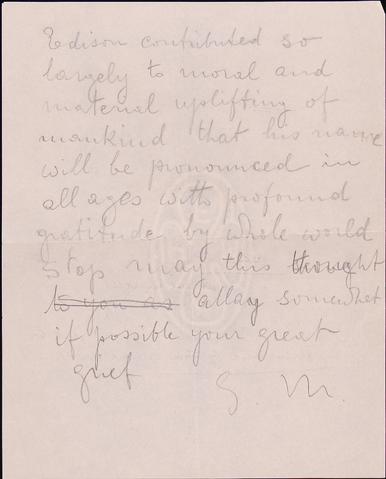 Edison contributed so
largely to moral and
material uplifting of
mankind that his name
will be pronounced in
all ages with profound
gratitude by whole world
Stop may this thought
to you as allay somewhat
if possible your great
grief
G. M.